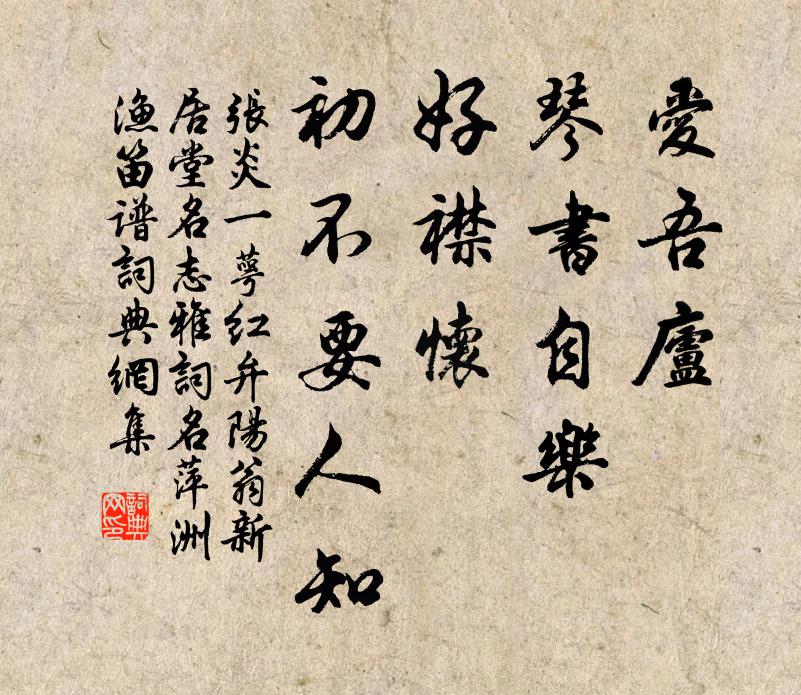 愛吾廬
琴書自樂
好襟懷
初不要人知
張炎一萼紅弁陽翁新
居堂名志雅詞名蘋洲
漁笛谱詞典網集
詞典
网印